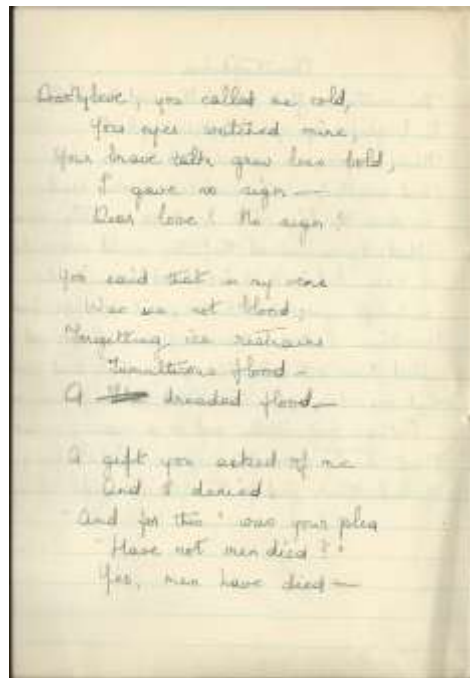 Dear love, you called me cold,
Your eyes watched mine,
Your brave talk grew less bold,
I gave no sign —
Dear love! No sign!
You said that in my veins
Was ice, not blood;
Forgetting, ice restrains
Tumultuous flood —
A dreaded flood —
A gift you asked of me
And I denied.
"And for this" was your plea
"Have not men died?"
Yes, men have died —